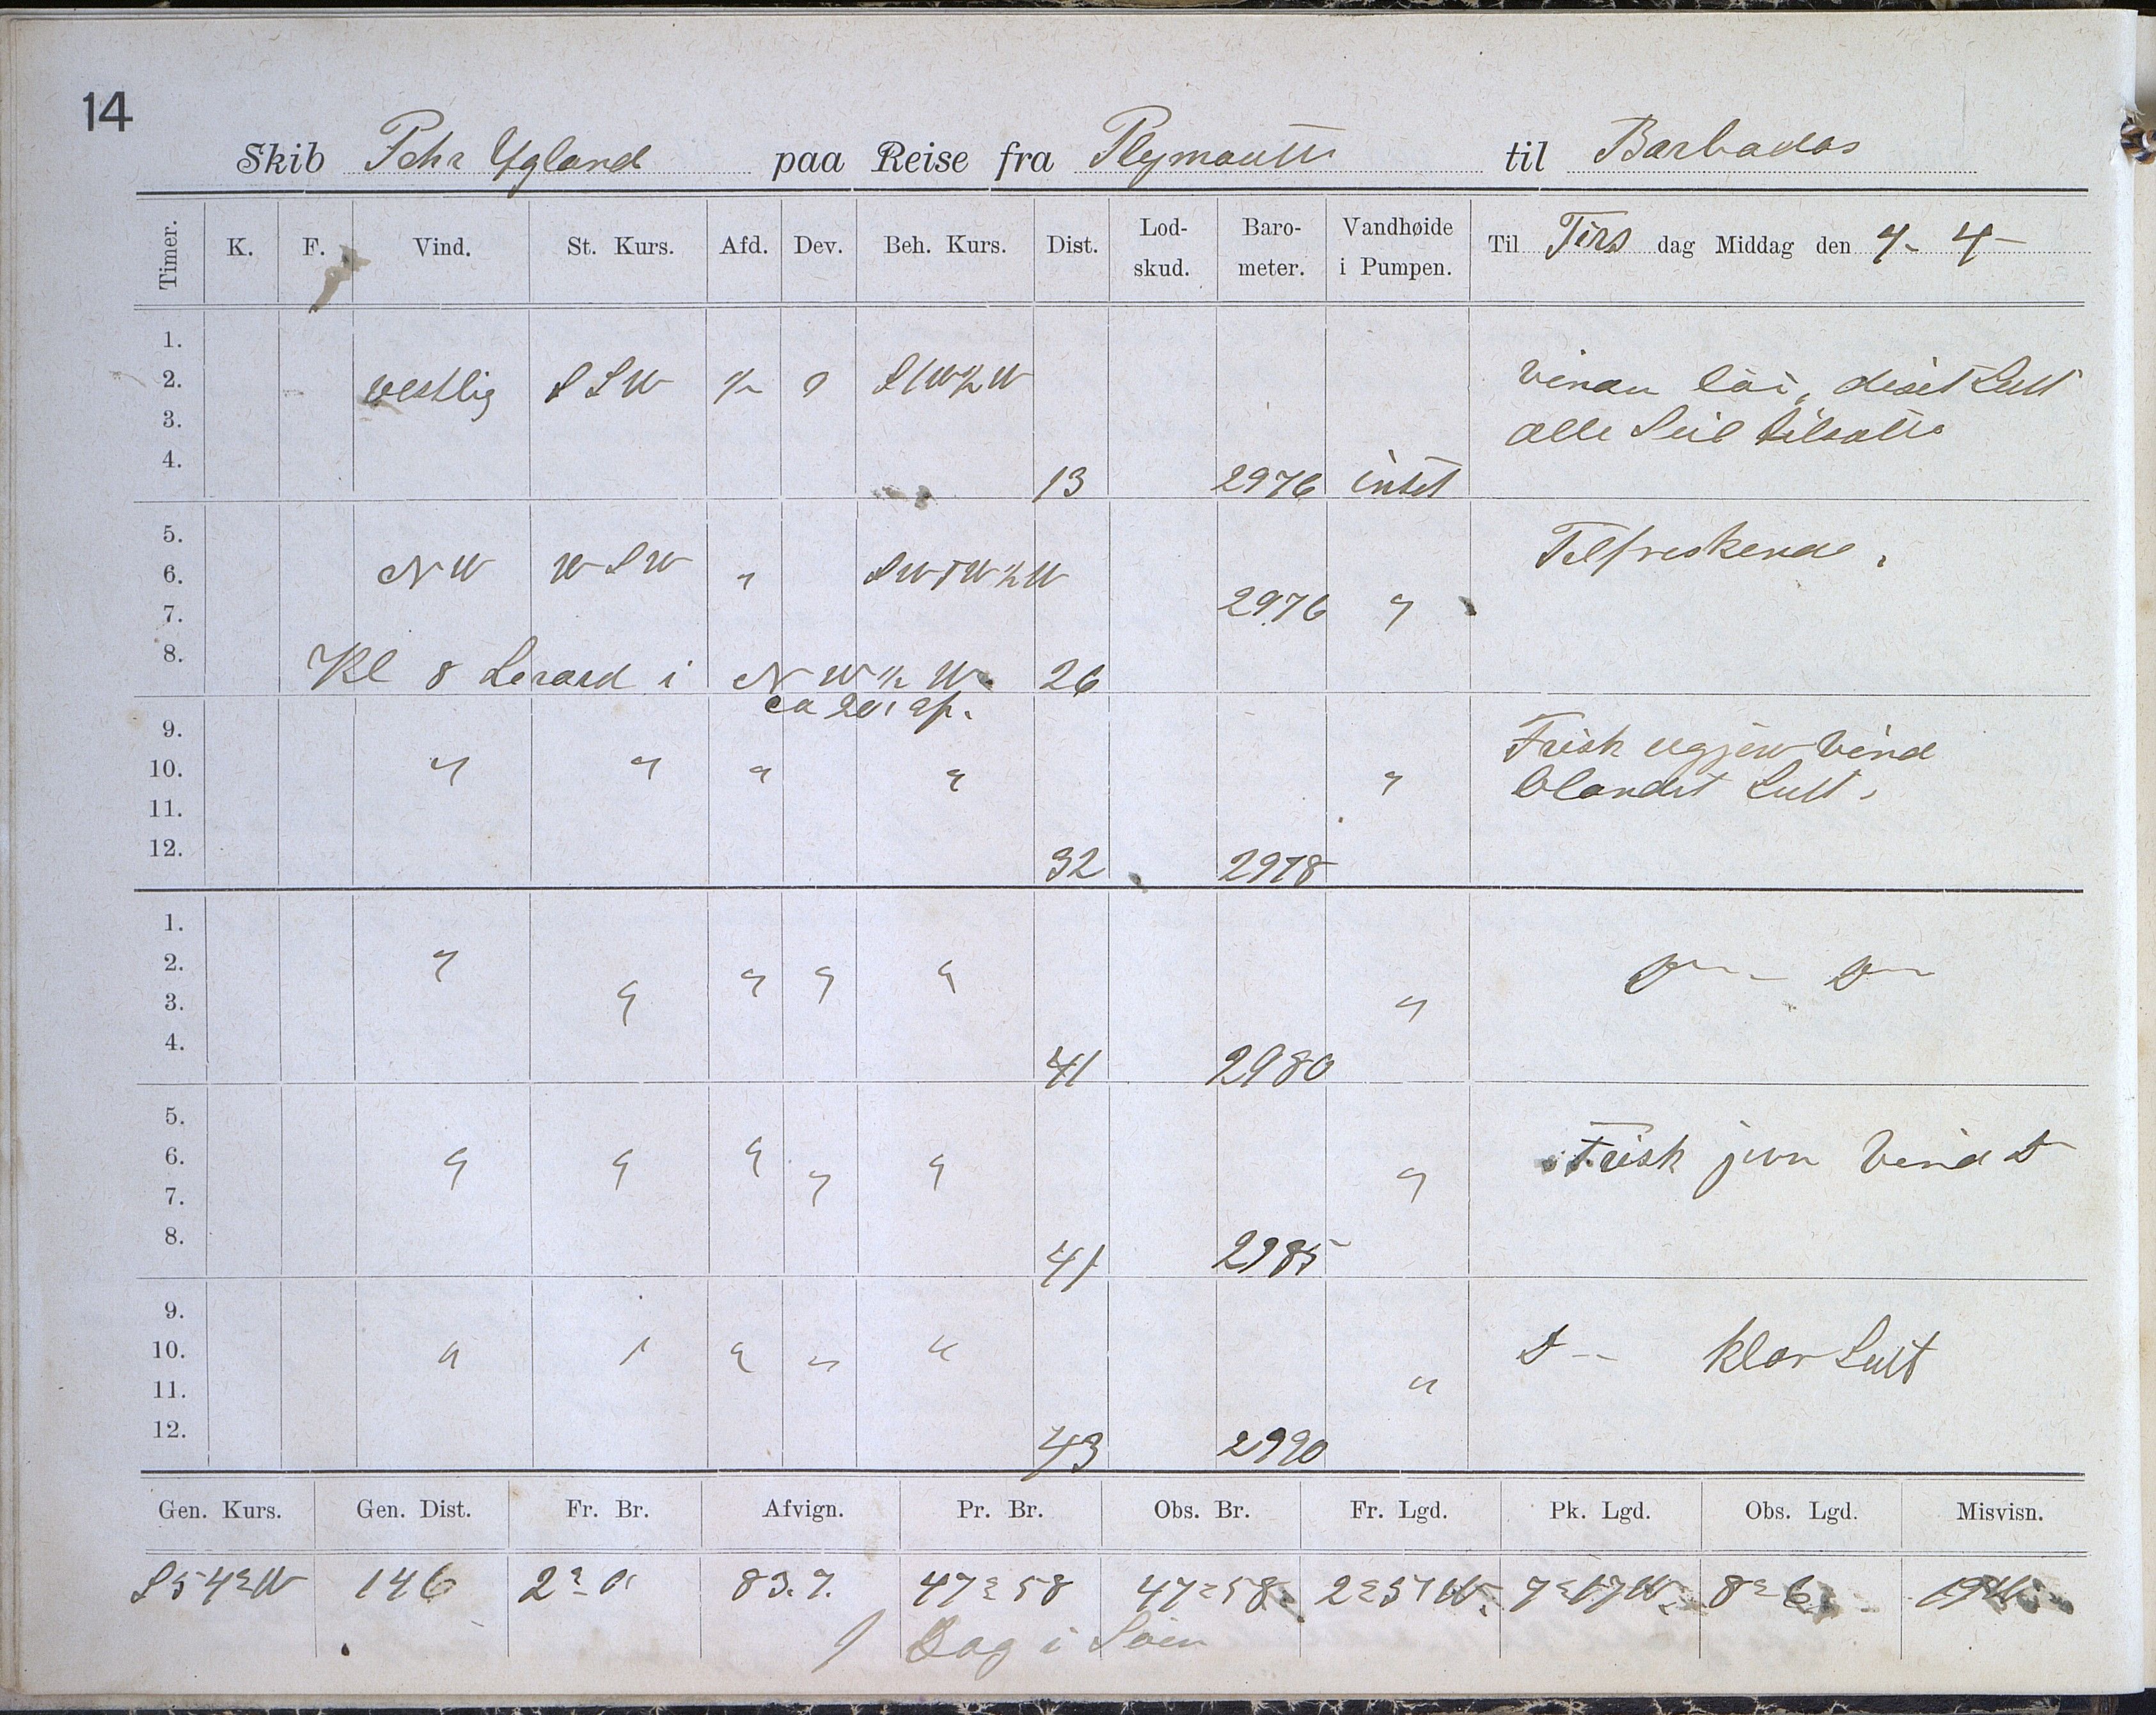 14
Skib Pehr Ygland paa Reise fra Plymouth til Barbados
Timer. K. F. Vind. St. Kurs. Afd. Dev. Beh. Kurs. Dist. Lod-skud. Baro-meter. Vandhøide i Pumpen. Til Tirs dag Middag den 4 - 4 -
1.
2. vestlig SSW ½ 0 S/W½W diset Luft
3. alle Seil tilsatte
4. 13 2976 intet
5. Tilfriskende.
6. NW WSW " SWTW½W
7. 2976 "
8. Kl 8 Lizard i NW½W 26
ca 20' af.
9. Frisk ugjevn Vind
10. " " " " " blandet Luft.
11.
12. 32 2978
1.
2. " " " " D - D -
3. " "
4. 41 2980
5.
6. " " " " Frisk jevn Vind D
7. " "
8. 41 2985
9.
10. " " " " " D - klar Luft
11. "
12. 43 2990
Gen. Kurs. Gen. Dist. Fr. Br. Afvign. Pr. Br. Obs. Br. Fr. Lgd. Pk. Lgd. Obs. Lgd. Misvisn.
S54°W 146 83.7. 47°58 47°58 7°17W 8°6 19W
1 Dag i Søen